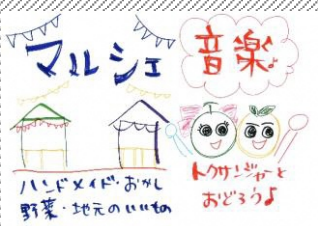 マルシェ
音楽♪
ハンドメイド・おかし
野菜・地元のいいもの
トクサンジャーと
おどろう♪